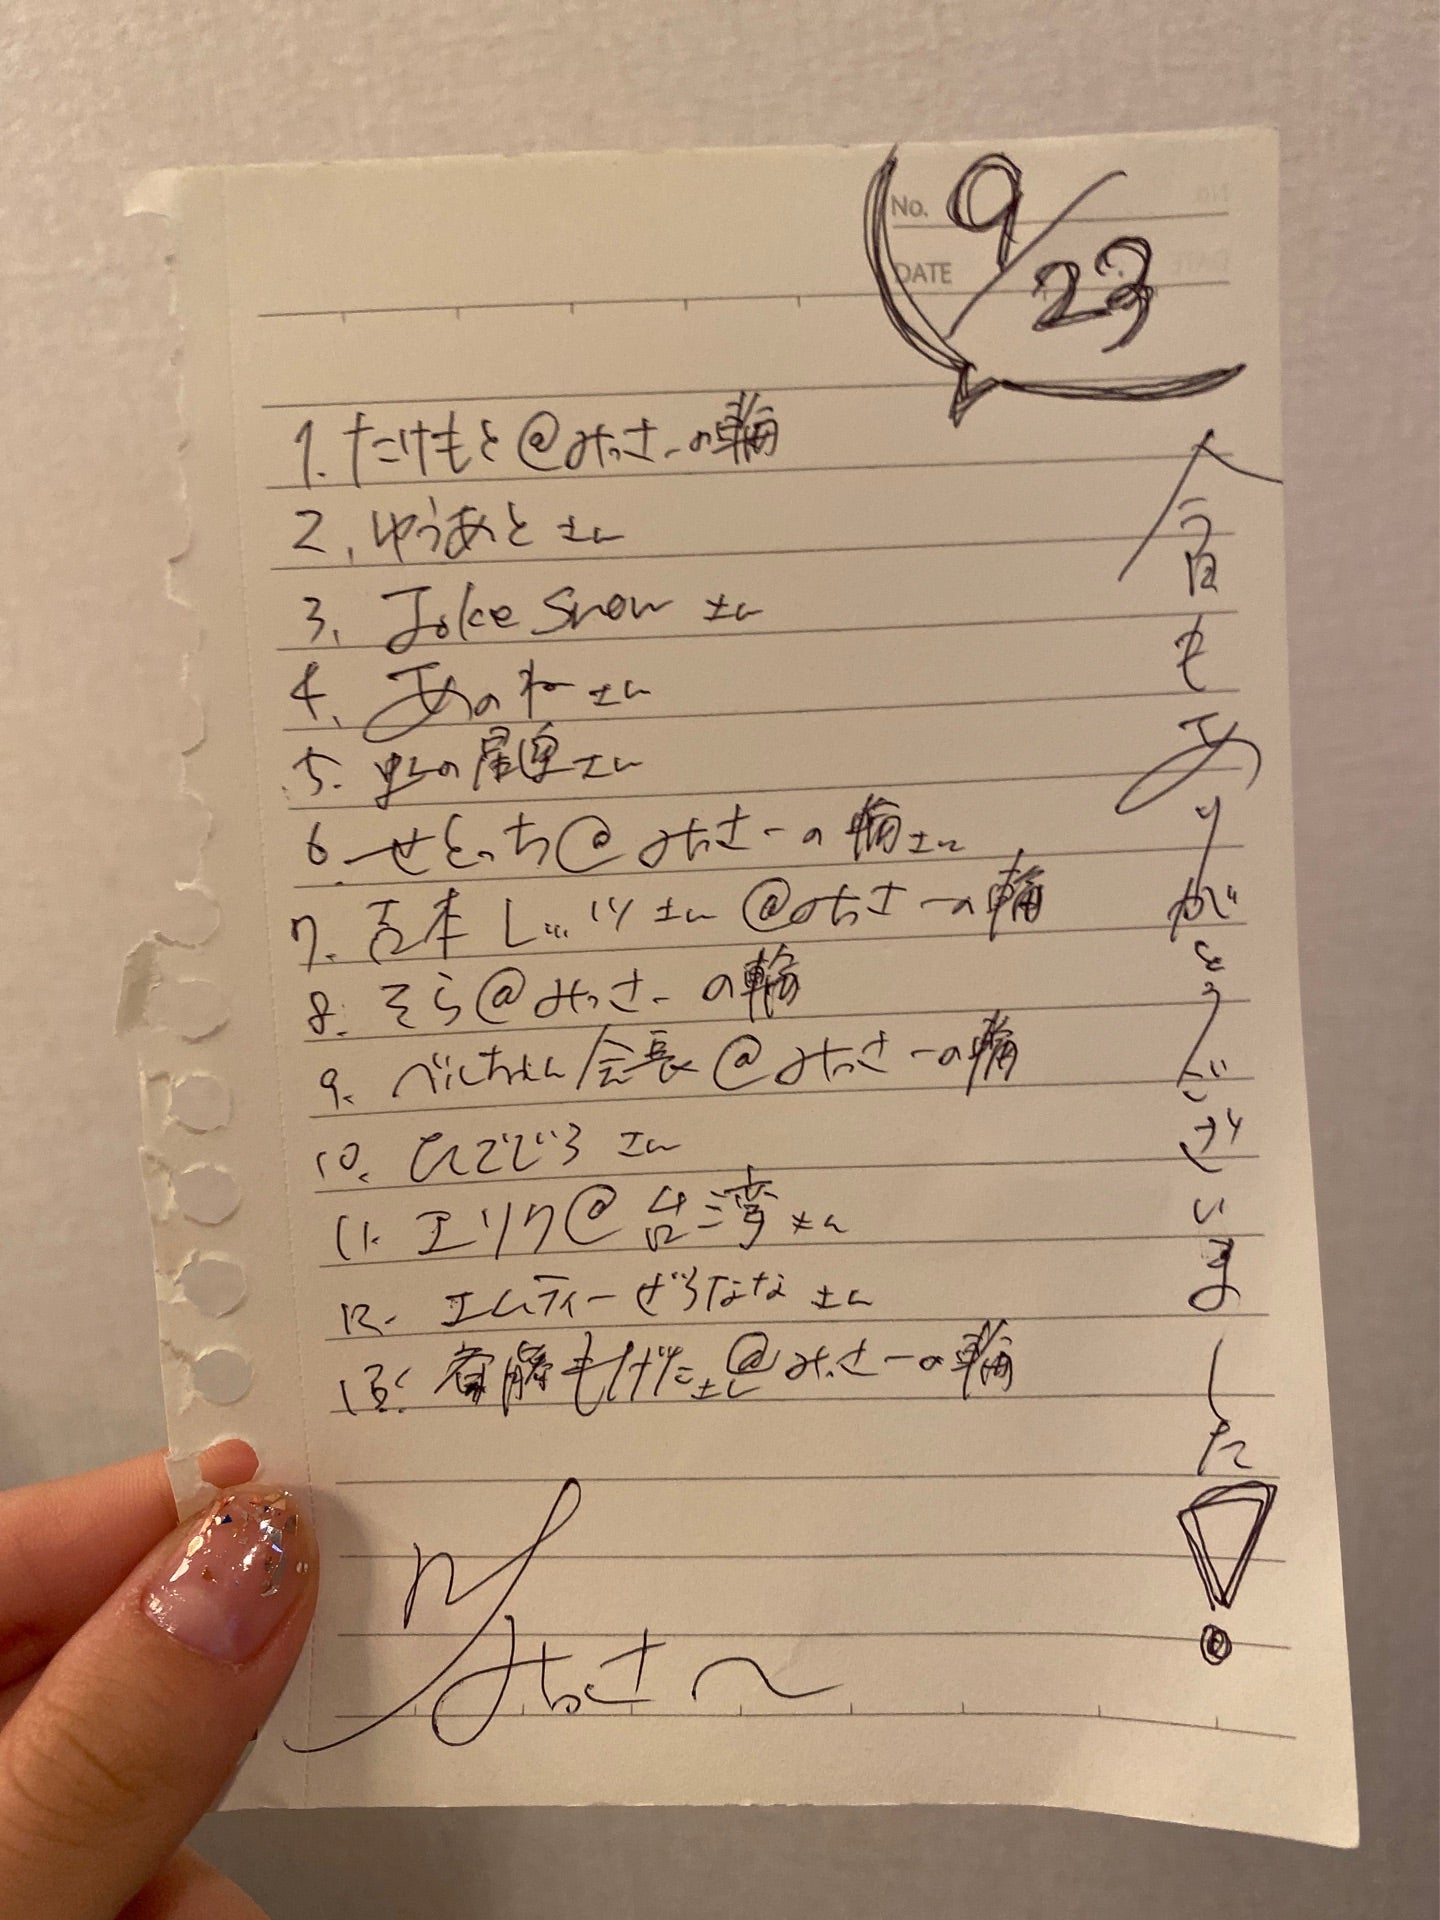 No.
DATE
9/23
1. たけもと@みっさーの輪
2. ゆうあと さん
3. Joke Snow さん
4. あのね さん
5. 虹の尾 さん
6. せとっち@みっさーの輪 さん
7. 吉本し…ツ さん @みっさーの輪
8. そら@みっさーの輪
9. べルちゃん会長@みっさーの輪
10. ひでじろ さん
11. エリク@台湾 さん
12. エムティーぜろなな さん
13. 斎藤もげた さん@みっさーの輪
今日もありがとうございました!
みっさ〜